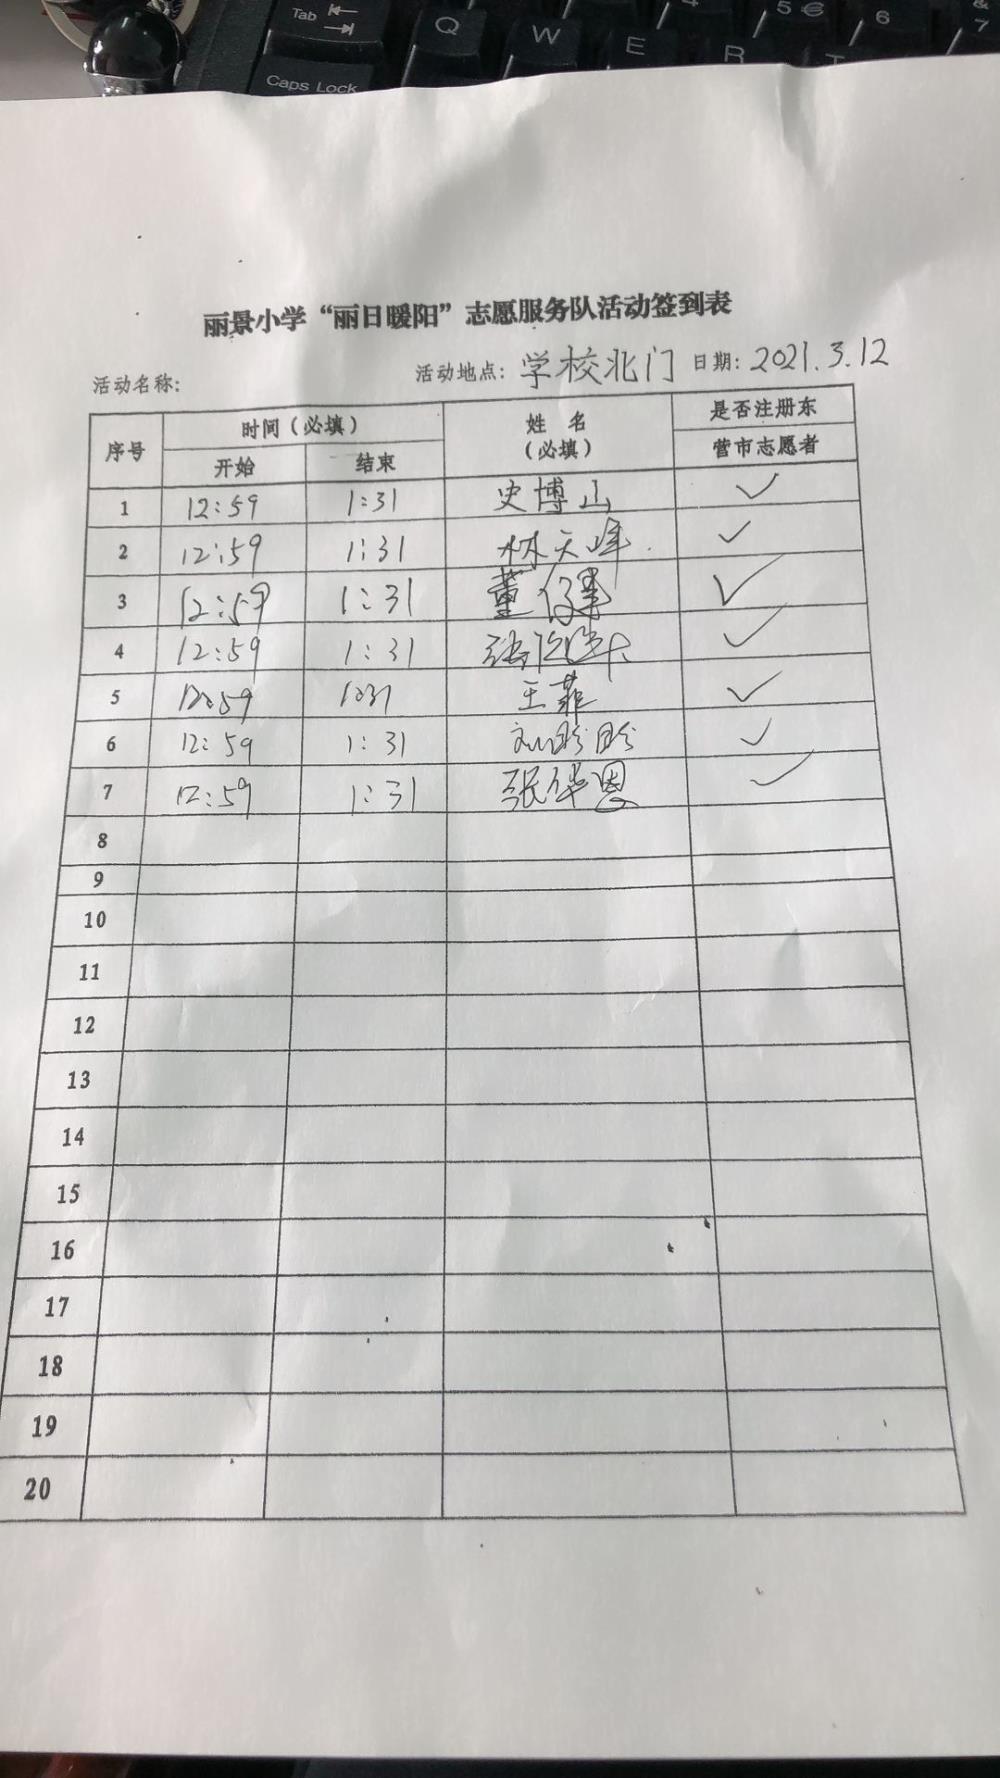 Tab
Q
W
E
R
T
5 €
6
&
7
Caps Lock
丽景小学“丽日暖阳”志愿服务队活动签到表
活动名称: 活动地点: 学校北门 日期: 2021.3.12
序号 时间(必填) 姓 名 (必填) 是否注册东
开始 结束 营市志愿者
1 12:59 1:31 史博山 ✓
2 12:59 1:31 林天峰 ✓
3 12:59 1:31 董 ✓
4 12:59 1:31 ✓
5 12:59 1:31 王菲 ✓
6 12:59 1:31 刘盼盼 ✓
7 12:59 1:31 张华恩 ✓
8
9
10
11
12
13
14
15
16
17
18
19
20